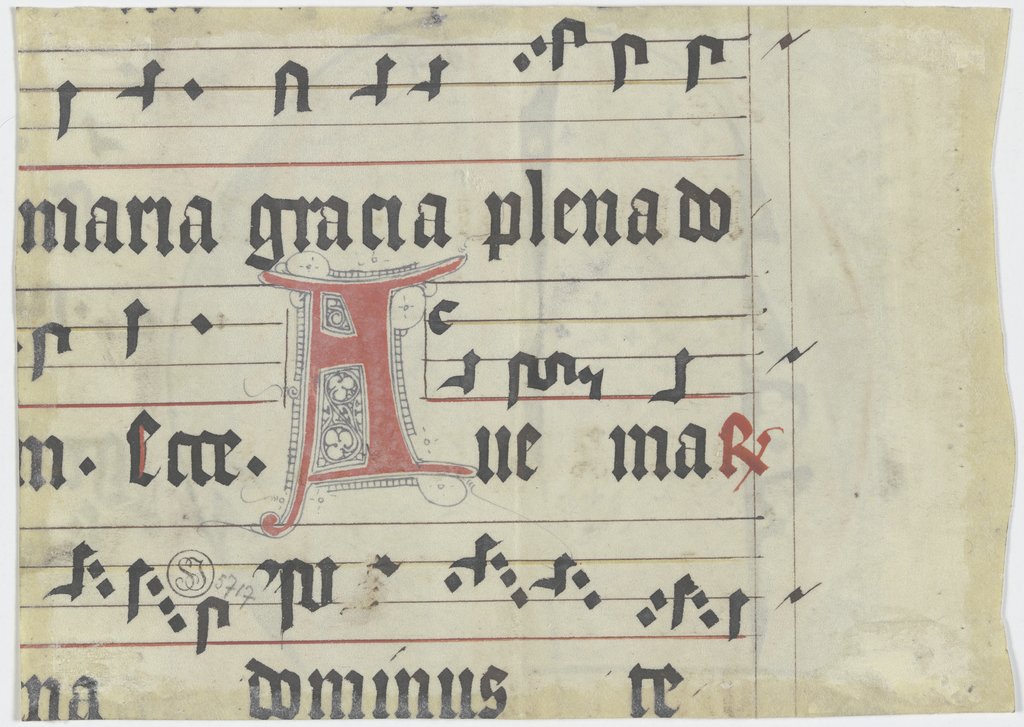 maria gracia plena do
m. Ecce. Aue ma ℟
5717
na dominus te